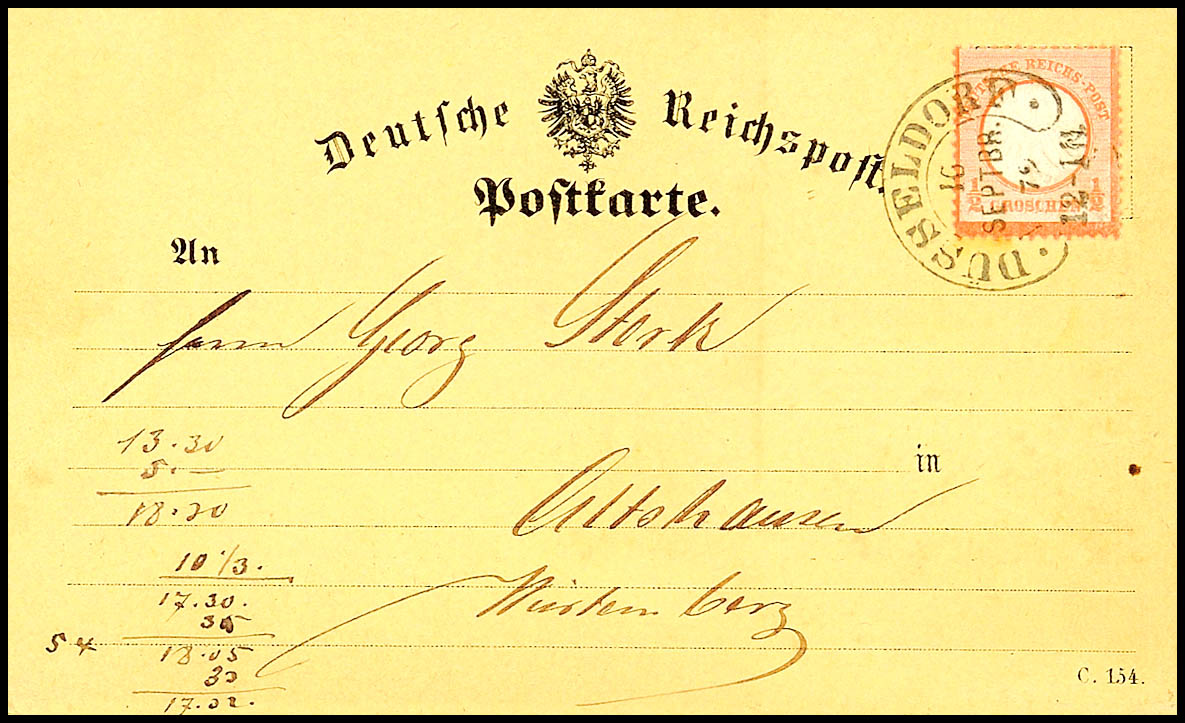 Deutsche Reichspost.
Postkarte.
DEUTSCHE REICHS-POST
1/2 GROSCHEN 1/2
DÜSSELDORF
16
SEPTBR.
73
12-1N.
An
Herrn Georg Stork
in
Altshausen
Würtemberg
13.30
5.—
18.30
10 1/3.
17.30.
35
5 4
18.05
33
17.32.
C. 154.